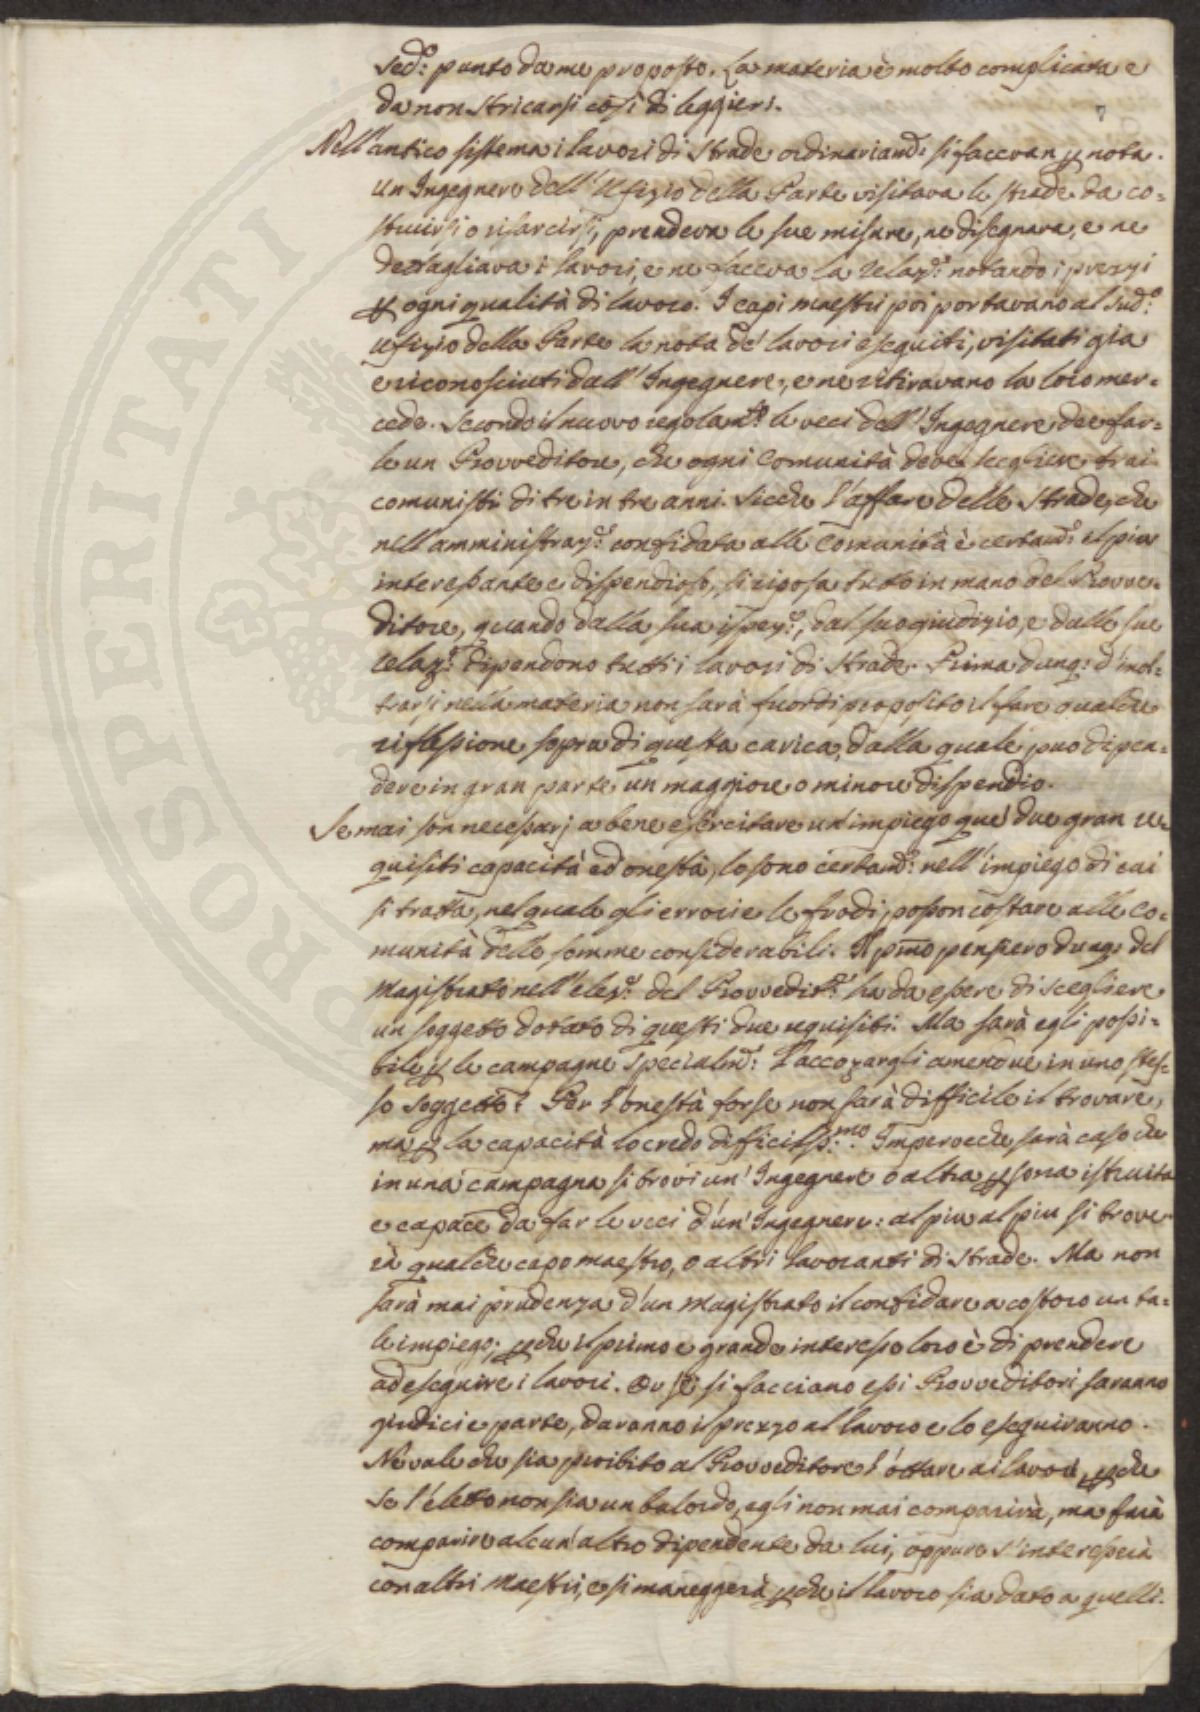 sed.º punto da me proposto. La materia è molto complicata e
da non stricarsi così di leggieri.
Nell'antico sistema i lavori di strade ordinariam.e si facevan p nota.
Un Ingegnere dell'Ufizio della Parte visitava le strade da co=
struirsi o risarcirsi, prendeva le sue misure, ne disegnava, e ne
dettagliava i lavori, e ne faceva la relaz.e notando i prezzi
p ogni qualità di lavoro. I capi maestri poi portavano al sud.º
Ufizio della Parte la nota de' lavori eseguiti, visitati gia
e riconosciuti dall'Ingegnere, e ne ritiravano la loro mer=
cede. Secondo il nuovo regolam.to le veci dell'Ingegnere dee far=
le un Provveditore, che ogni Comunità deve scegliere trai
comunisti di tre in tre anni. Sicche l'affare delle strade, che
nell'amministraz.e confidata alle Comunità è certam.e il piu
interessante e dispendioso, si riposa tutto in mano del Provve=
ditore, quando dalla sua ispez.e, dal suo giudizio, e dalle sue
relaz.i dipendono tutti i lavori di strade. Prima dunq: d'inol=
trarsi nella materia non sarà fuor di proposito il fare qualche
riflessione sopra di questa carica, dalla quale puo dipen=
dere in gran parte un maggiore o minore dispendio.
Se mai son necessarj a bene esercitare un'impiego que' due gran re=
quisiti capacità ed onestà, lo sono certam.e nell'impiego di cui
si tratta, nel quale gli errori e le frodi posson costare alle Co=
munità delle somme considerabili. Il pmo pensiero dunq: del
Magistrato nell'elez.e del Provvedit.e ha da essere di scegliere
un soggetto dotato di questi due requisiti. Ma sarà egli possi=
bile p le campagne specialm.e l'accozzargli amendue in uno stes=
so soggetto? Per l'onestà forse non sarà difficile il trovare,
ma p la capacità lo credo difficiliss.mo. Imperocche sarà caso che
in una campagna si trovi un'Ingegnere o altra psona istruita
e capace da far le veci d'un'Ingegnere: al piu al piu si trove=
rà qualche capo maestro, o altri lavoranti di strade. Ma non
sarà mai prudenza d'un Magistrato il confidare a costoro un ta=
le impiego; pche il primo e grande interesse loro è di prendere
ad eseguire i lavori. Or se si facciano essi Provveditori saranno
giudici e parte, daranno il prezzo al lavoro e lo eseguiranno.
Ne vale che sia proibito al Provveditore l'ottare ai lavori pche
se l'eletto non sia un balordo, egli non mai comparirà, ma farà
comparire alcun'altro dipendente da lui, oppure s'interesserà
con altri Maestri, e si maneggerà pche il lavoro sia dato a quelli.
PROSPERITATI